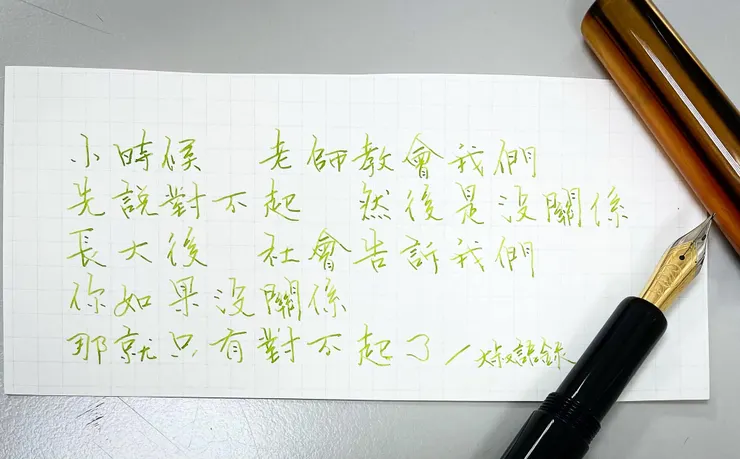 小時候　老師教會我們
先說對不起　然後是沒關係
長大後　社會告訴我們
你如果沒關係
那就只有對不起了／大叔語錄